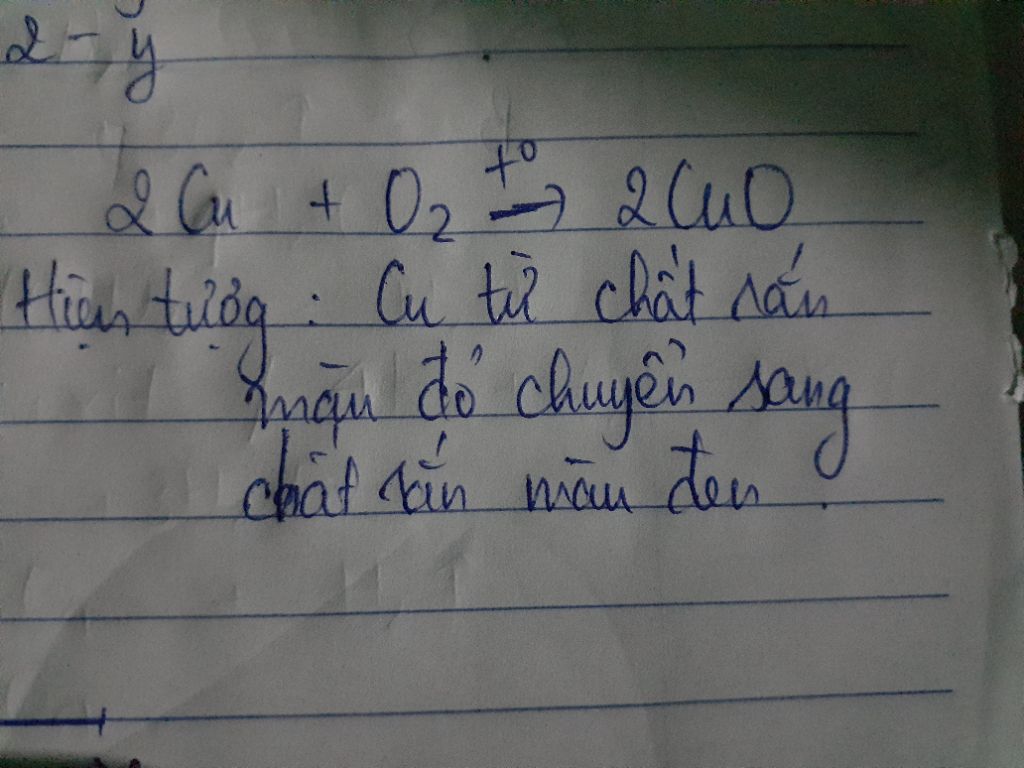 2 - y
2Cu + O₂ →^{t°} 2CuO
Hiện tượng : Cu từ chất rắn
màu đỏ chuyển sang
chất rắn màu đen.